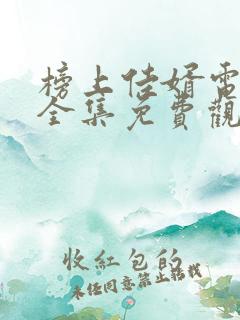 榜上佳婿電
全集免費觀
收紅包的
未经同意禁止转载